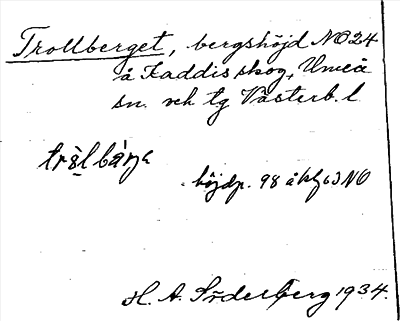 Trollberget, bergshöjd NO 24
å Kaddis skog, Umeå
sn. och tg Västerb. l.
höjdp. 98 å kbl 63 NO
H. A. Söderberg 1934.